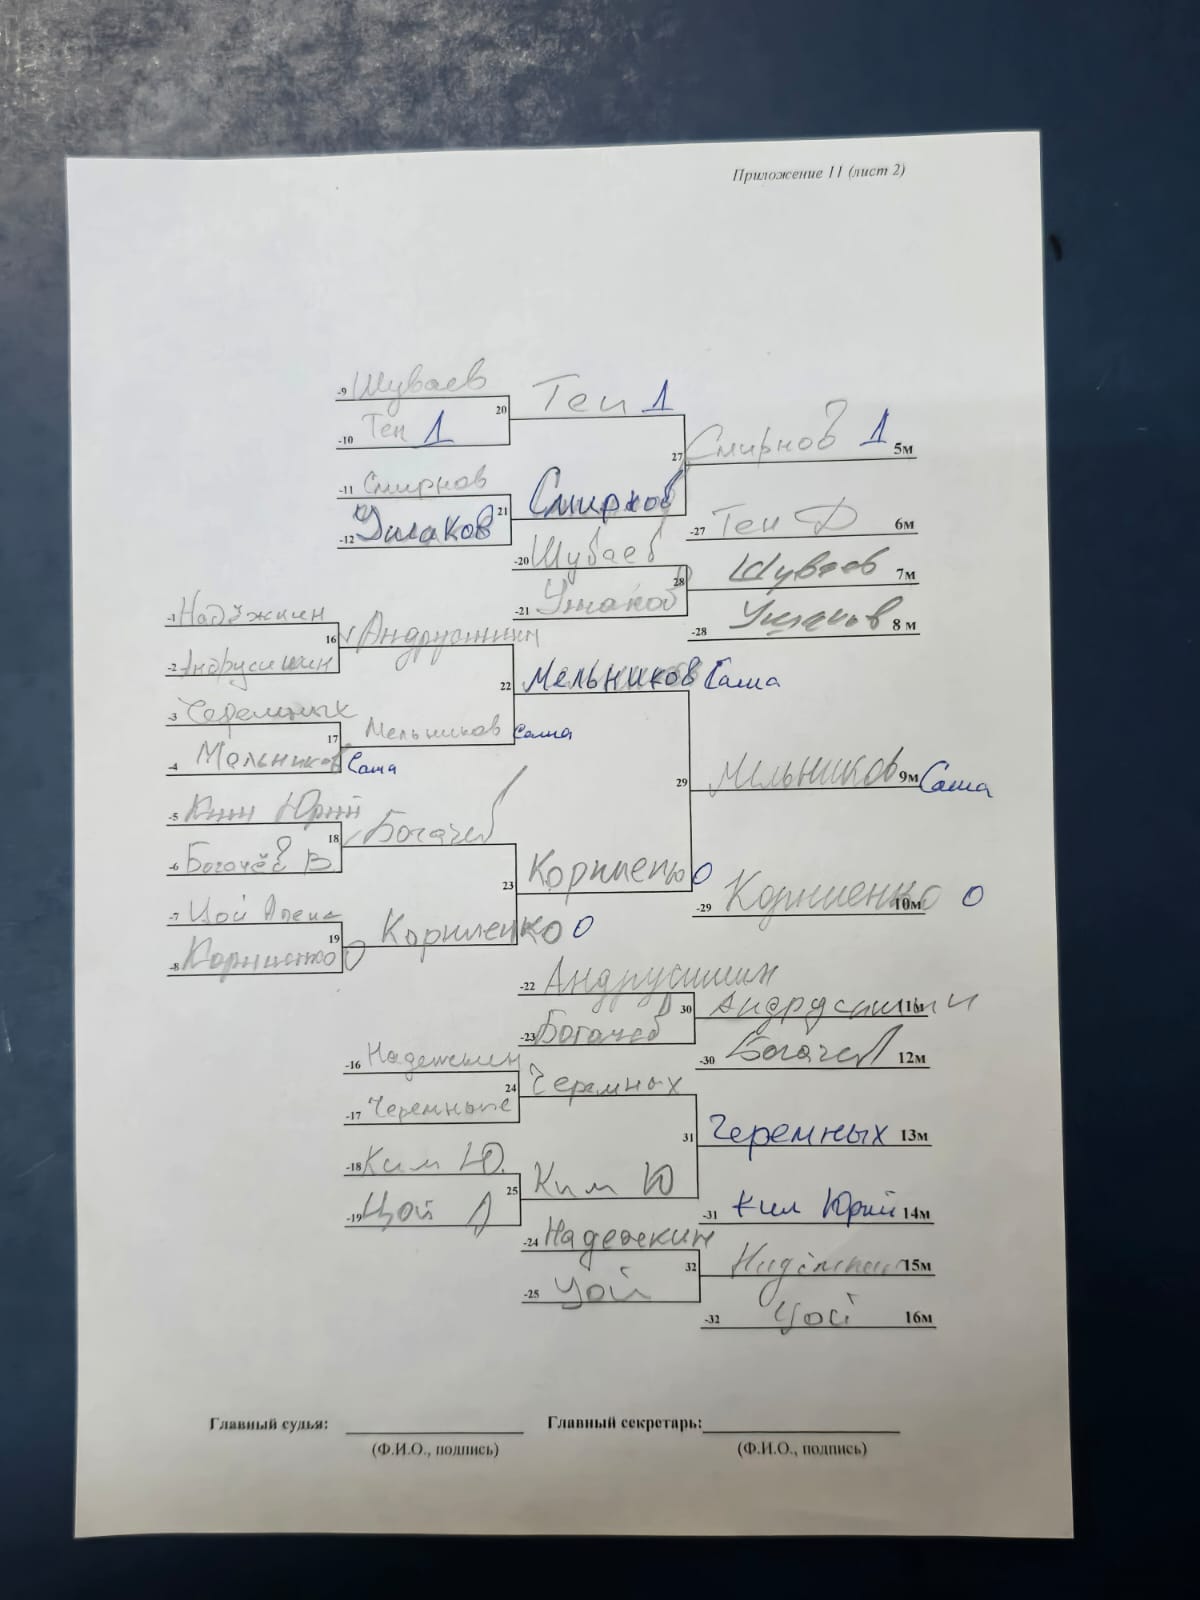 Приложение 11 (лист 2)
-9 Шуваев
20 Тен 1
-10 Тен 1
27 Смирнов 1 5м
-11 Смирнов
21 Смирнов
-12 Ушаков
-27 Тен Д 6м
-20 Шуваев
28 Шуваев 7м
-21 Ушаков
-28 Ушаков 8 м
-1 Надёжкин
16 Андрусишин
-2 Андрусишин
22 Мельников Саша
-3 Черемных
17 Мельников Саша
-4 Мельников Саша
29 Мельников 9м Саша
-5 Ким Юрий
18 Богачев
-6 Богачёв В.
23 Корниенко О
-7 Цой Алена
19 Корниенко О
-8 Корниенко О
-29 Корниенко 10м О
-22 Андрусишин
30 Андрусишин 11м
-23 Богачев
-30 Богачев 12м
-16 Надежкин
24 Черемных
-17 Черемных
31 Черемных 13м
-18 Ким Ю.
25 Ким Ю
-19 Цой А
-31 Ким Юрий 14м
-24 Надежкин
32 Надёжкин 15м
-25 Цой
-32 Цой 16м
Главный судья: Главный секретарь:
(Ф.И.О., подпись) (Ф.И.О., подпись)